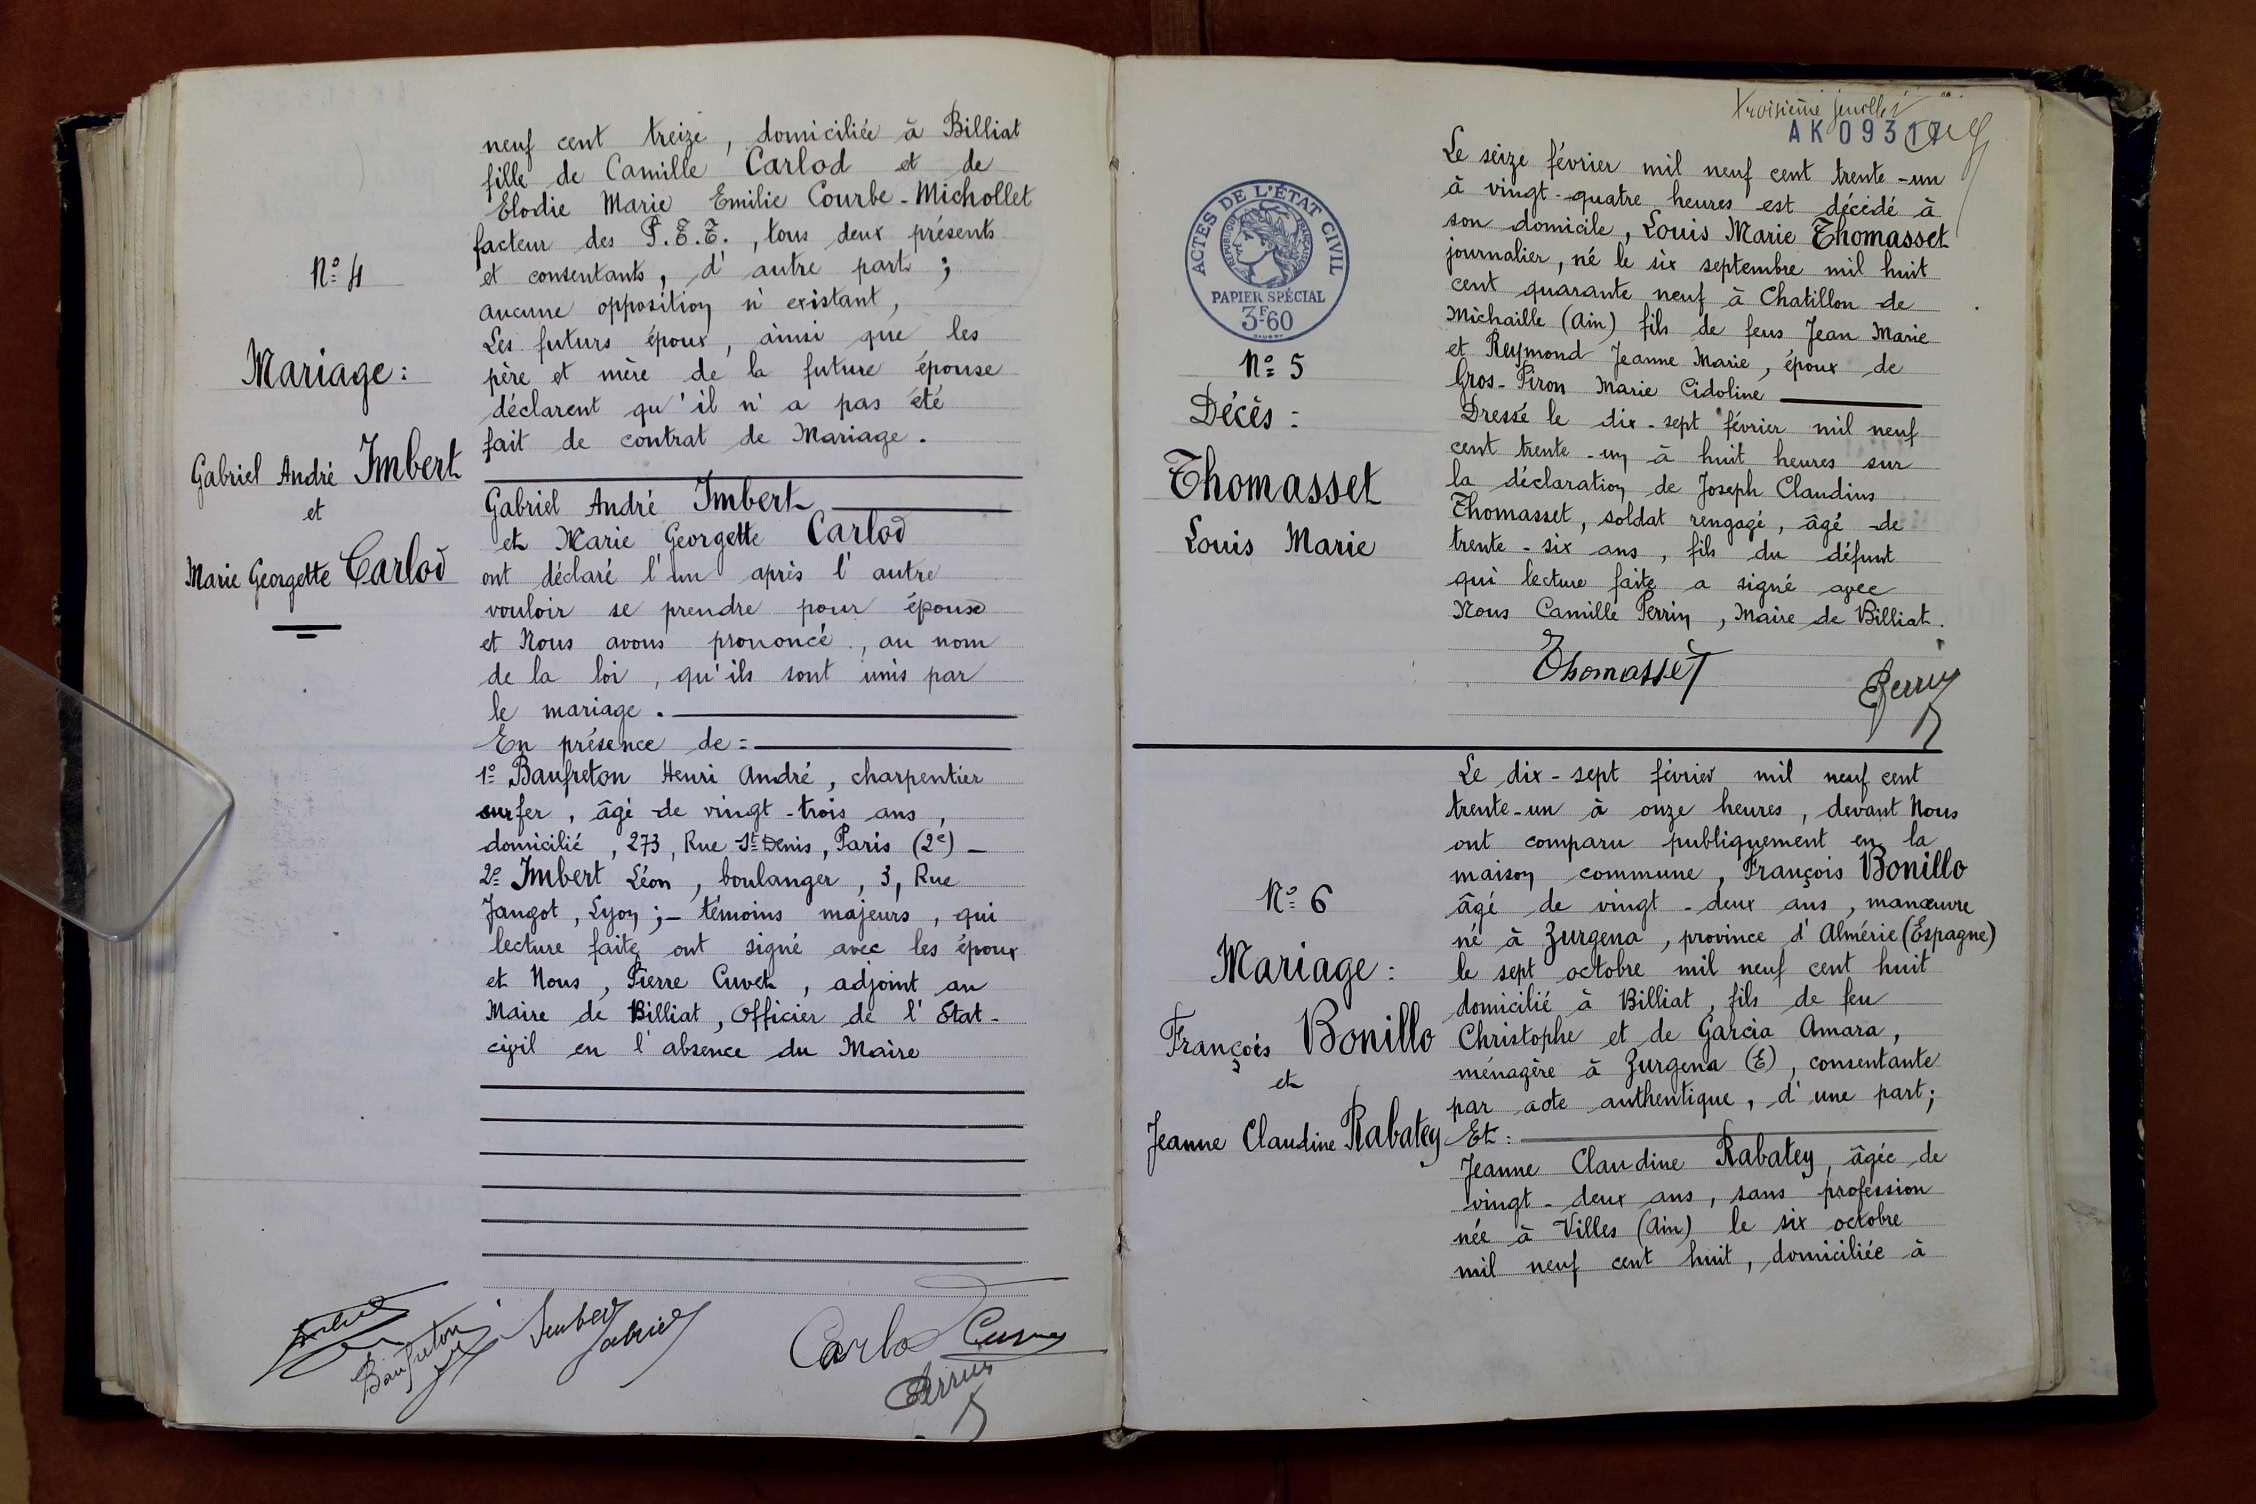 neuf cent treize, domiciliée à Billiat
fille de Camille Carlod et de
Elodie Marie Emilie Courbe-Michollet
facteur des P.T.T., tous deux présents
et consentants, d'autre part ;
aucune opposition n'existant,
Les futurs époux, ainsi que les
père et mère de la future épouse
déclarent qu'il n'a pas été
fait de contrat de Mariage.
N° 4
Mariage :
Gabriel André Imbert
et
Marie Georgette Carlod
Gabriel André Imbert
et Marie Georgette Carlod
ont déclaré l'un après l'autre
vouloir se prendre pour époux
et Nous avons prononcé, au nom
de la loi, qu'ils sont unis par
le mariage.
En présence de :
1° Baufreton Henri André, charpentier
sur fer, âgé de vingt-trois ans,
domicilié, 273, Rue St Denis, Paris (2e) -
2° Imbert Léon, boulanger, 3, Rue
Jangot, Lyon ; - témoins majeurs, qui
lecture faite ont signé avec les époux
et Nous, Pierre Cuvet, adjoint au
Maire de Billiat, Officier de l'Etat-
civil en l'absence du Maire
Baufreton
Imbert
Gabriel
Carlod
Perrin
troisième
AK 09317
ACTES DE L'ÉTAT CIVIL
RÉPUBLIQUE FRANÇAISE
PAPIER SPÉCIAL
3F60
N° 5
Décès :
Thomasset
Louis Marie
Le seize février mil neuf cent trente-un
à vingt-quatre heures est décédé à
son domicile, Louis Marie Thomasset
journalier, né le six septembre mil huit
cent quarante neuf à Chatillon de
Michaille (Ain) fils de feus Jean Marie
et Reymond Jeanne Marie, époux de
Gros-Piron Marie Cidoline
Dressé le dix-sept février mil neuf
cent trente-un à huit heures sur
la déclaration de Joseph Claudius
Thomasset, soldat rengagé, âgé de
trente-six ans, fils du défunt
qui lecture faite a signé avec
Nous Camille Perrin, Maire de Billiat.
Thomasset
Perrin
N° 6
Mariage :
François Bonillo
et
Jeanne Claudine Rabatey
Le dix-sept février mil neuf cent
trente-un à onze heures, devant Nous
ont comparu publiquement en la
maison commune, François Bonillo
âgé de vingt-deux ans, manœuvre
né à Zurgena, province d'Almérie (Espagne)
le sept octobre mil neuf cent huit
domicilié à Billiat, fils de feu
Christophe et de Garcia Amara,
ménagère à Zurgena (E), consentante
par acte authentique, d'une part ;
Et :
Jeanne Claudine Rabatey, âgée de
vingt-deux ans, sans profession
née à Villes (Ain) le six octobre
mil neuf cent huit, domiciliée à